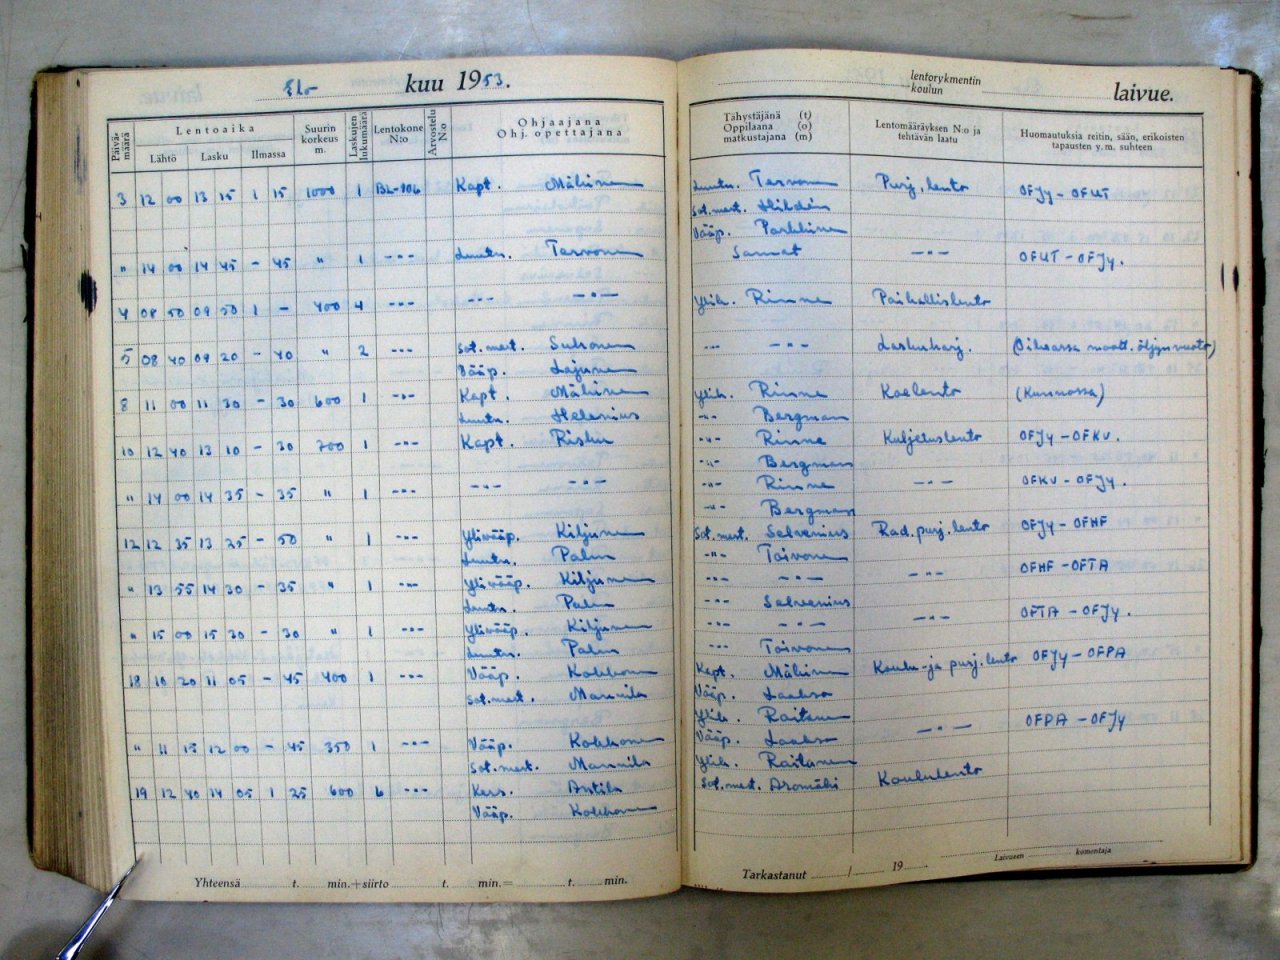 Elo- kuu 1953.
lentorykmentin
koulun
laivue.
Päivä-
määrä
Lentoaika
Lähtö Lasku Ilmassa
Suurin
korkeus
m.
Laskujen
lukumäärä
Lentokone
N:o
Arvostelu
N:o
Ohjaajana
Obj. opettajana
Tähystäjänä (t)
Oppilaana (o)
matkustajana (m)
Lentomääräyksen N:o ja
tehtävän laatu
Huomautuksia reitin, sään, erikoisten
tapausten y. m. suhteen
3 12 00 13 15 1 15 1000 1 BL-106 Kapt. Mäkinen Luutn. Tervonen Purj. lento OFJy - OFUT
Sot.mest.
Vääp. Parkkinen
" 14 00 14 45 - 45 " 1 -"- Luutn. Tervonen Samat -"- OFUT - OFJy.
4 08 50 09 50 1 - 400 4 -"- -"- -"- Ylik. Rinne Paikallislento
5 08 40 09 20 - 40 " 2 -"- Sot.mest. Suhonen -"- -"- Laskuharj. (Oikeassa moott. öljynvuoto)
Vääp. Lajunen
8 11 00 11 30 - 30 600 1 -"- Kapt. Mäkinen Ylik. Rinne Koelento (Kunnossa)
Luutn. Helenius -"- Bergman
10 12 40 13 10 - 30 700 1 -"- Kapt. Risku -"- Rinne Kuljetuslento OFJy - OFKU.
-"- Bergman
" 14 00 14 35 - 35 " 1 -"- -"- -"- -"- Rinne -"- OFKU - OFJy.
-"- Bergman
12 12 35 13 25 - 50 " 1 -"- Ylivääp. Kiljunen Sot.mest. Selvenius Rad.purj.lento OFJy - OFHF
Luutn. Palin -"- Toivonen
" 13 55 14 30 - 35 " 1 -"- Ylivääp. Kiljunen -"- -"- -"- OFHF - OFTA
Luutn. Palin -"- Selvenius
" 15 00 15 30 - 30 " 1 -"- Ylivääp. Kiljunen -"- -"- -"- OFTA - OFJy.
Luutn. Palin -"- Toivonen
18 10 20 11 05 - 45 400 1 -"- Vääp. Kokkonen Kapt. Mäkinen Koulu- ja purj. lento OFJy - OFPA
Sot.mest. Mannila Vääp. Laakso
Ylik. Raitanen
" 11 15 12 00 - 45 350 1 -"- Vääp. Kokkonen Vääp. Laakso -"- OFPA - OFJy
Sot.mest. Mannila Ylik. Raitanen
19 12 40 14 05 1 25 600 6 -"- Kers. Anttila Sot.mest. Aromäki Koululento
Vääp. Kokkonen
Yhteensä t. min.+siirto t. min.= t. min.
Tarkastanut / 19
Laivueen komentaja